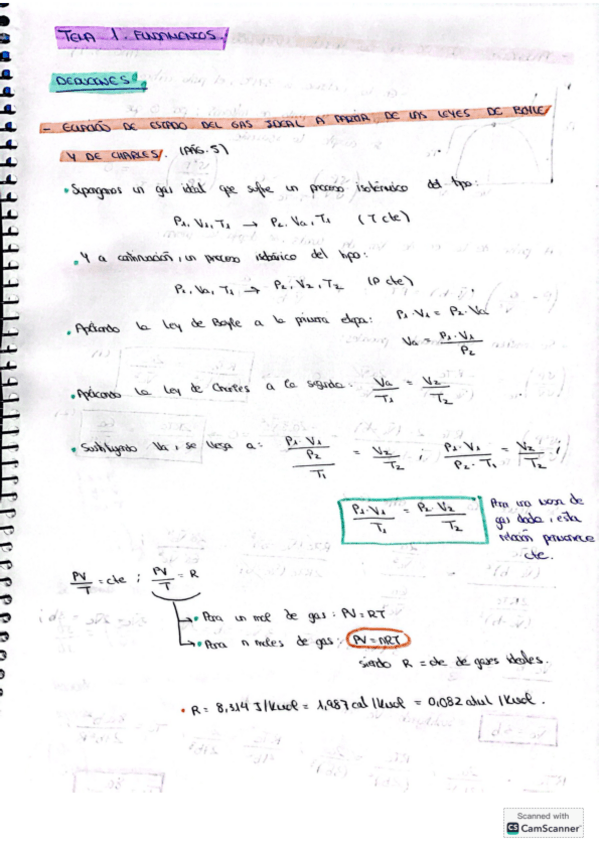 TEMA 1. FUNDAMENTOS.
DEDUCCIONES.
- ECUACIÓN DE ESTADO DEL GAS IDEAL A PARTIR DE LAS LEYES DE BOYLE
Y DE CHARLES. (PÁG. 5)
• Supongamos un gas ideal que sufre un proceso isotérmico del tipo:
P₁, V₁, T₁ → P₂, Va, T₁ (T cte)
• Y a continuación, un proceso isobárico del tipo:
P₂, Va, T₁ → P₂, V₂, T₂ (P cte)
• Aplicando la ley de Boyle a la primera etapa: P₁·V₁ = P₂·Va
Va = P₁·V₁ / P₂
• Aplicando la ley de Charles a la segunda: Va/T₁ = V₂/T₂
• Sustituyendo Va, se llega a: (P₁·V₁/P₂)/T₁ = V₂/T₂ ; P₁·V₁/(P₂·T₁) = V₂/T₂ ;
P₁·V₁/T₁ = P₂·V₂/T₂
Para una masa de
gas dada, esta
relación permanece
cte.
PV/T = cte ; PV/T = R
→ • Para un mol de gas: PV=RT
→ • Para n moles de gas: PV=nRT
siendo R = cte de gases ideales.
• R = 8,314 J/Kmol = 1,987 cal/Kmol = 0,082 atml/Kmol.
Scanned with
CS CamScanner